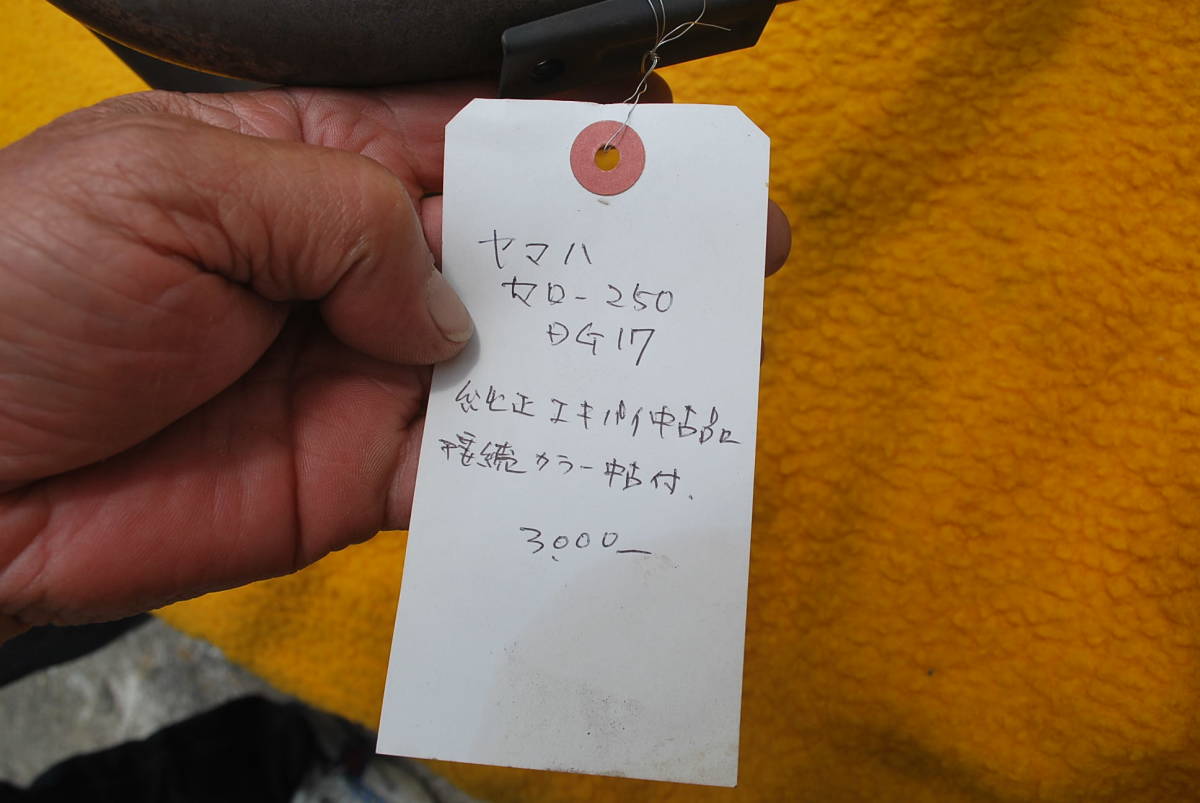 ヤマハ
セロー250
DG17
純正エキパイ中古品
接続カラー中古付.
3,000ー